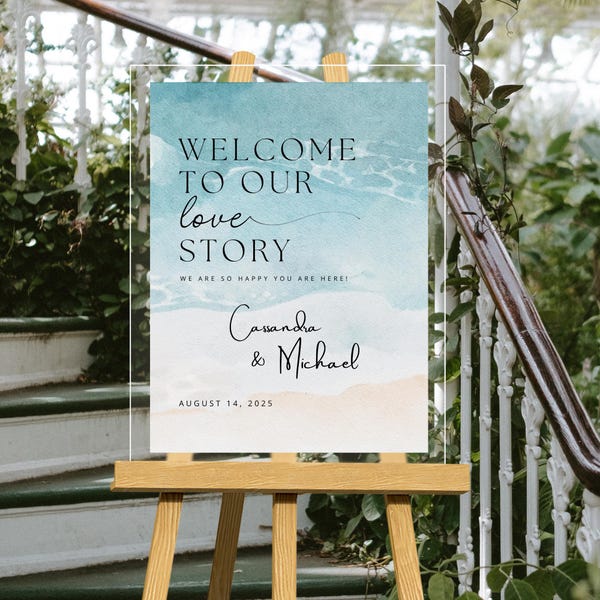 WELCOME
TO OUR
love
STORY
WE ARE SO HAPPY YOU ARE HERE!
Cassandra
& Michael
AUGUST 14, 2025